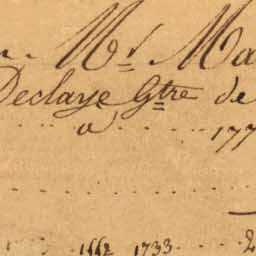 Mr Ma
Declaye Gtre de
a 177
1662 1733 2